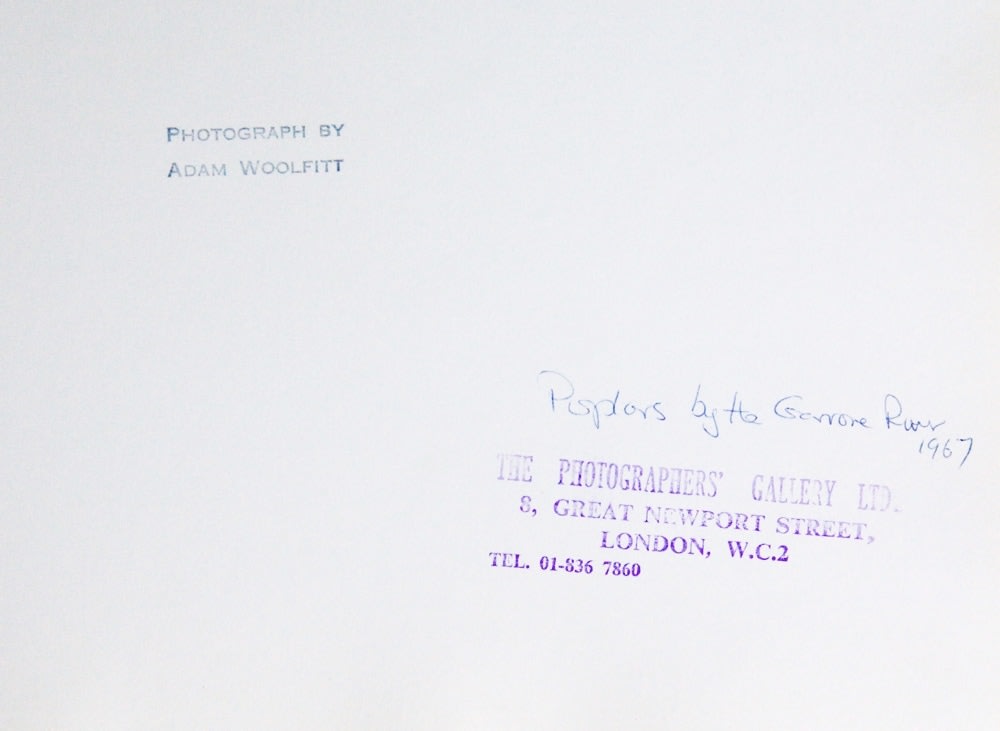 PHOTOGRAPH BY
ADAM WOOLFITT
Poplars by the Garrone River
1967
THE PHOTOGRAPHERS' GALLERY LTD.
8, GREAT NEWPORT STREET,
LONDON, W.C.2
TEL. 01-836 7860